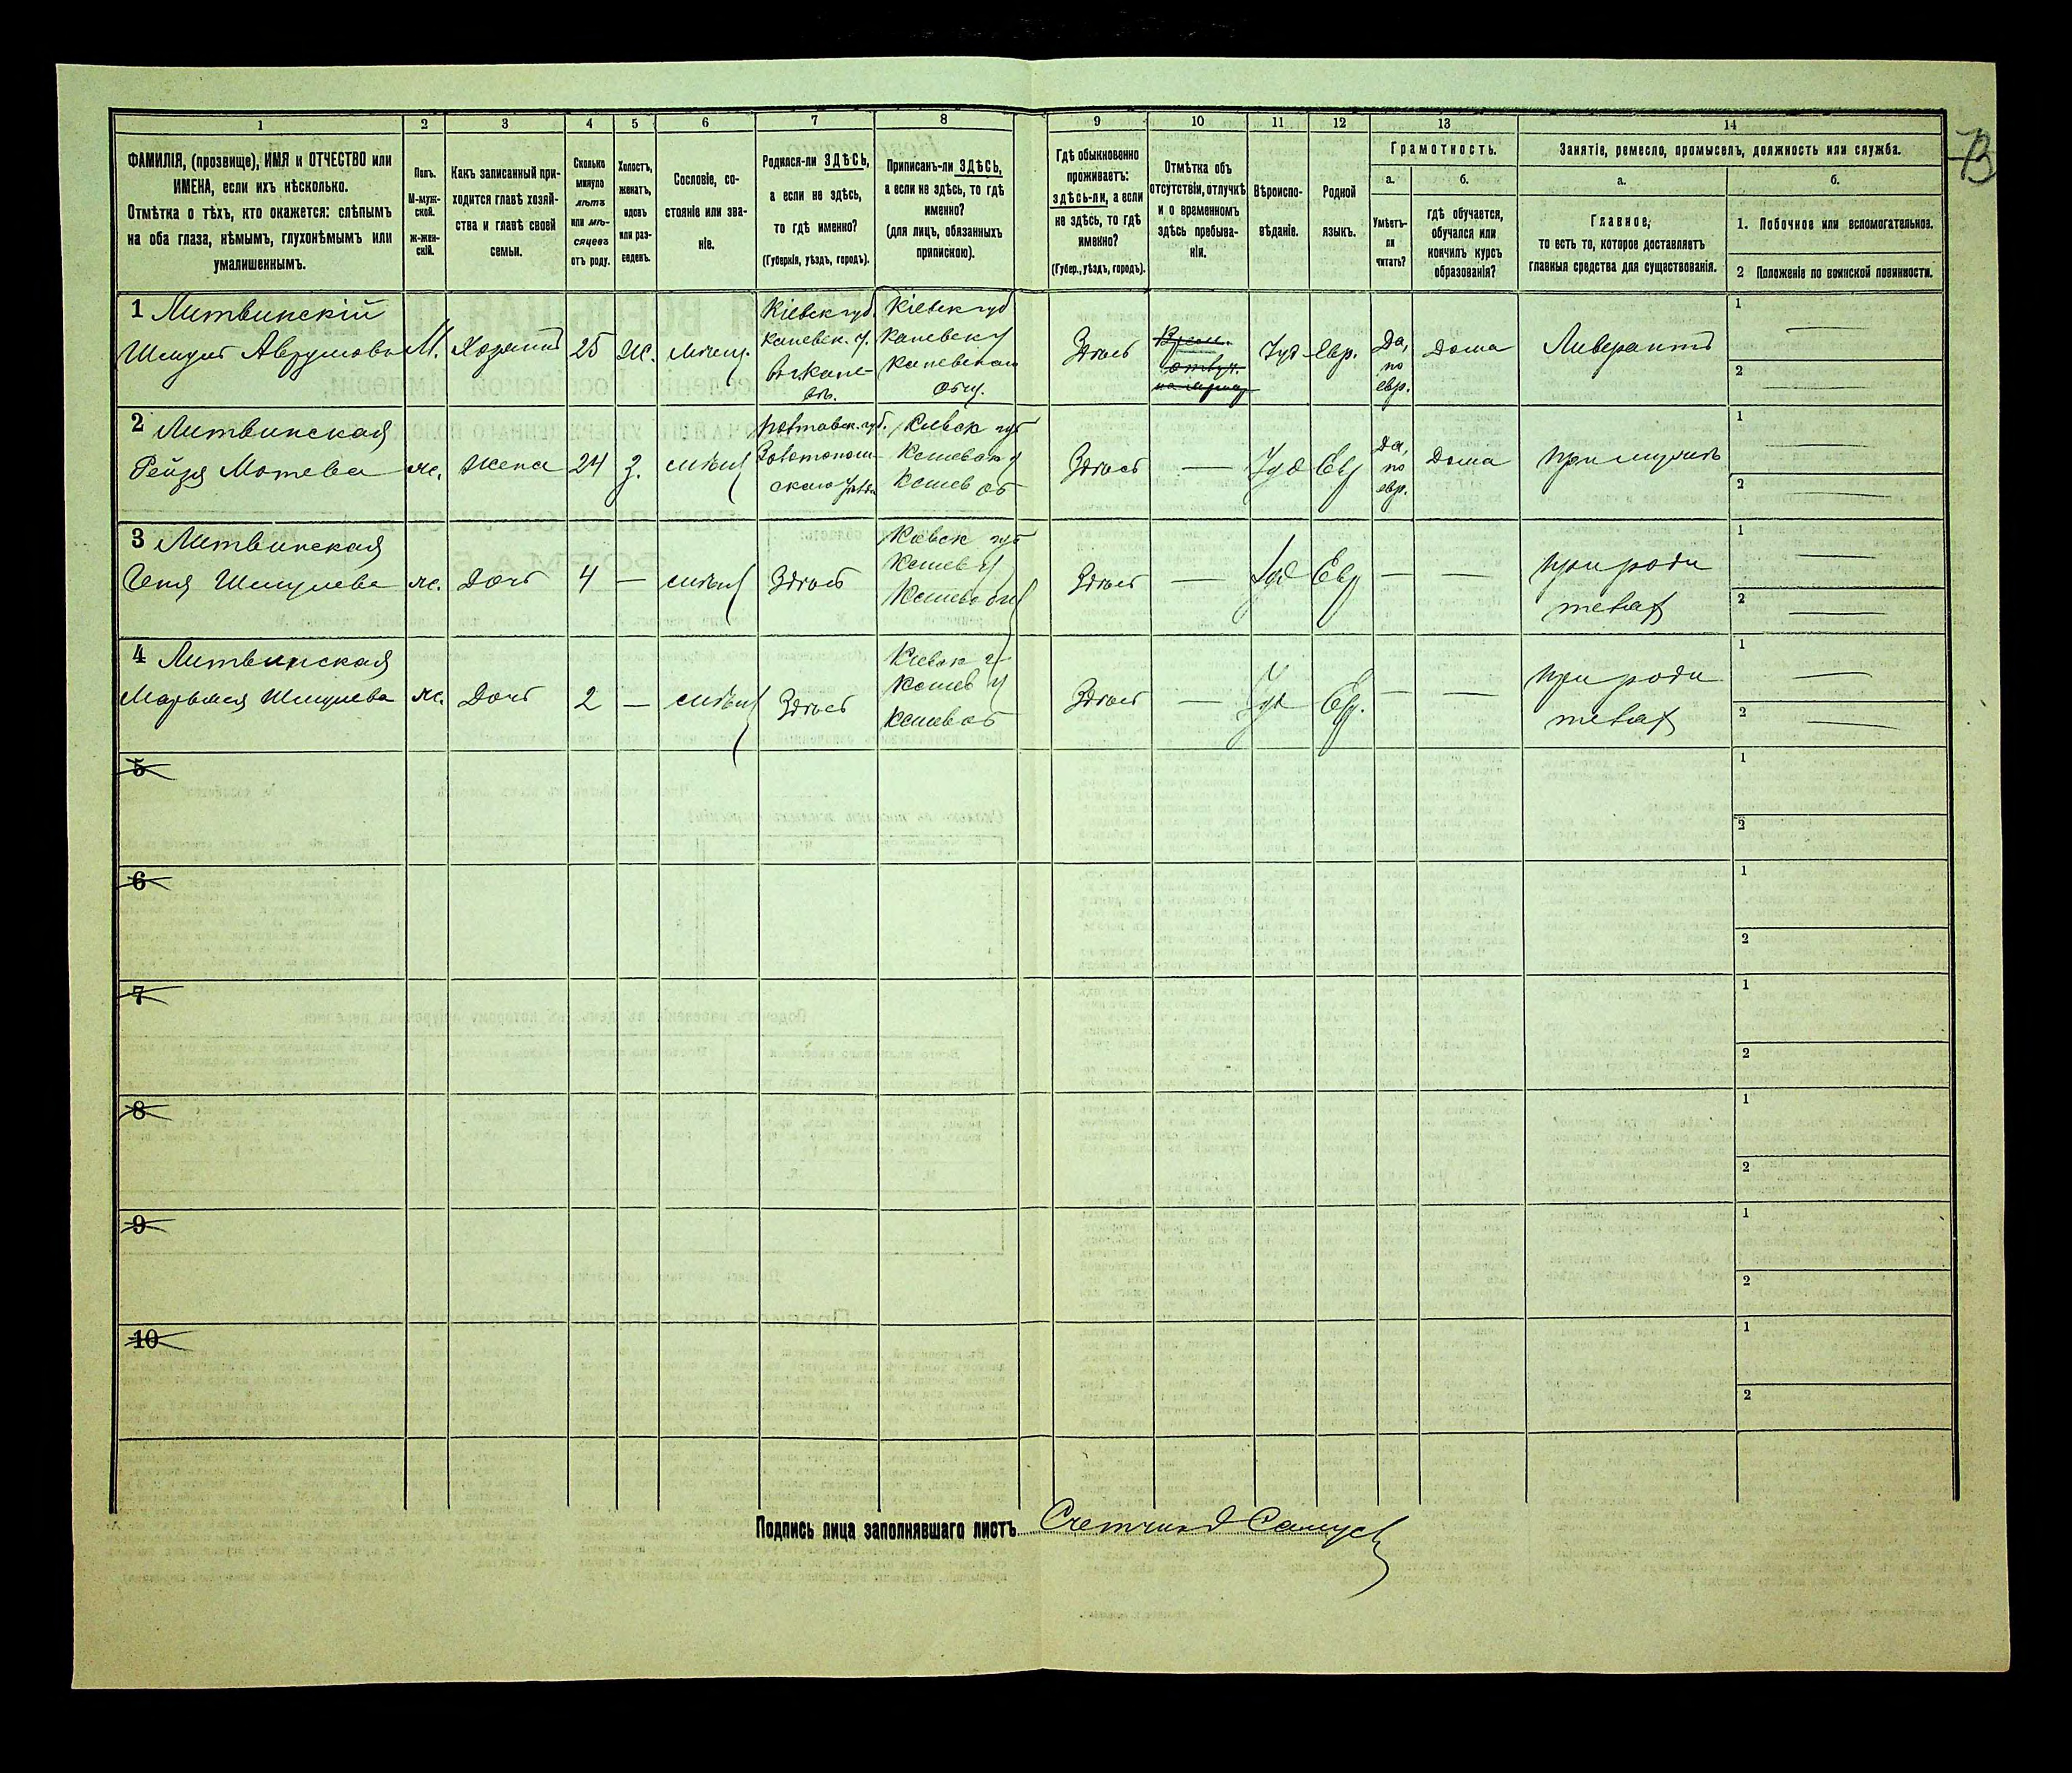 1 2 3 4 5 6 7 8 9 10 11 12 13 14
ФАМИЛІЯ, (прозвище), ИМЯ и ОТЧЕСТВО или
ИМЕНА, если ихъ нѣсколько.
Отмѣтка о тѣхъ, кто окажется: слѣпымъ
на оба глаза, нѣмымъ, глухонѣмымъ или
умалишеннымъ.
Полъ.
М-муж-
ской.
Ж-жен-
скій.
Какъ записанный при-
ходится главѣ хозяй-
ства и главѣ своей
семьи.
Сколько
минуло
лѣтъ
или мѣ-
сяцевъ
отъ роду.
Холостъ,
женатъ,
вдовъ
или раз-
веденъ.
Сословіе, со-
стояніе или зва-
ніе.
Родился-ли ЗДѢСЬ,
а если не здѣсь,
то гдѣ именно?
(Губернія, уѣздъ, городъ).
Приписанъ-ли ЗДѢСЬ,
а если не здѣсь, то гдѣ
именно?
(для лицъ, обязанныхъ
припискою).
Гдѣ обыкновенно
проживаетъ:
здѣсь-ли, а если
не здѣсь, то гдѣ
именно?
(Губер., уѣздъ, городъ).
Отмѣтка объ
отсутствіи, отлучкѣ
и о временномъ
здѣсь пребыва-
ніи.
Вѣроиспо-
вѣданіе.
Родной
языкъ.
Грамотность.
а.
Умѣетъ-
ли
читать?
б.
гдѣ обучается,
обучался или
кончилъ курсъ
образованія?
Занятіе, ремесло, промыселъ, должность или служба.
а.
Главное,
то есть то, которое доставляетъ
главныя средства для существованія.
б.
1. Побочное или вспомогательное.
2 Положеніе по воинской повинности.
1 Литвинскій
Шмуль Аврумовъ
М.
Хозяинъ
25
Ж.
мѣщ.
Кіевск губ.
Каневск. у.
въ Кане-
вѣ.
Кіевск губ
Каневск у
Каневском
общ.
Здѣсь
Іуд
Евр.
Да,
по
евр.
Дома
Ливерантъ
1
2
2 Литвинская
Рейзя Мотева
ж.
Жена
24
З.
мѣщ
Полтавск. губ.
Золотоном-
скаго уѣзда
Кіевск губ
Каневск у
Канев об
Здѣсь
—
Іуд
Евр
Да,
по
евр.
Дома
При мужѣ
1
2
3 Литвинская
Шмулева
ж.
Дочь
4
—
мѣщ
Здѣсь
Кіевск губ
Канев у
Канев общ
Здѣсь
—
Іуд
Евр
—
—
При роди
теляхъ
1
2
4 Литвинская
Марьяся Шмулева
ж.
Дочь
2
—
мѣщ
Здѣсь
Кіевск г
Канев у
Канев об
Здѣсь
—
Іуд
Евр.
—
—
При роди
теляхъ
1
2
5
1
2
6
1
2
7
1
2
8
1
2
9
1
2
10
1
2
Подпись лица заполнявшаго листъ Счетчикъ